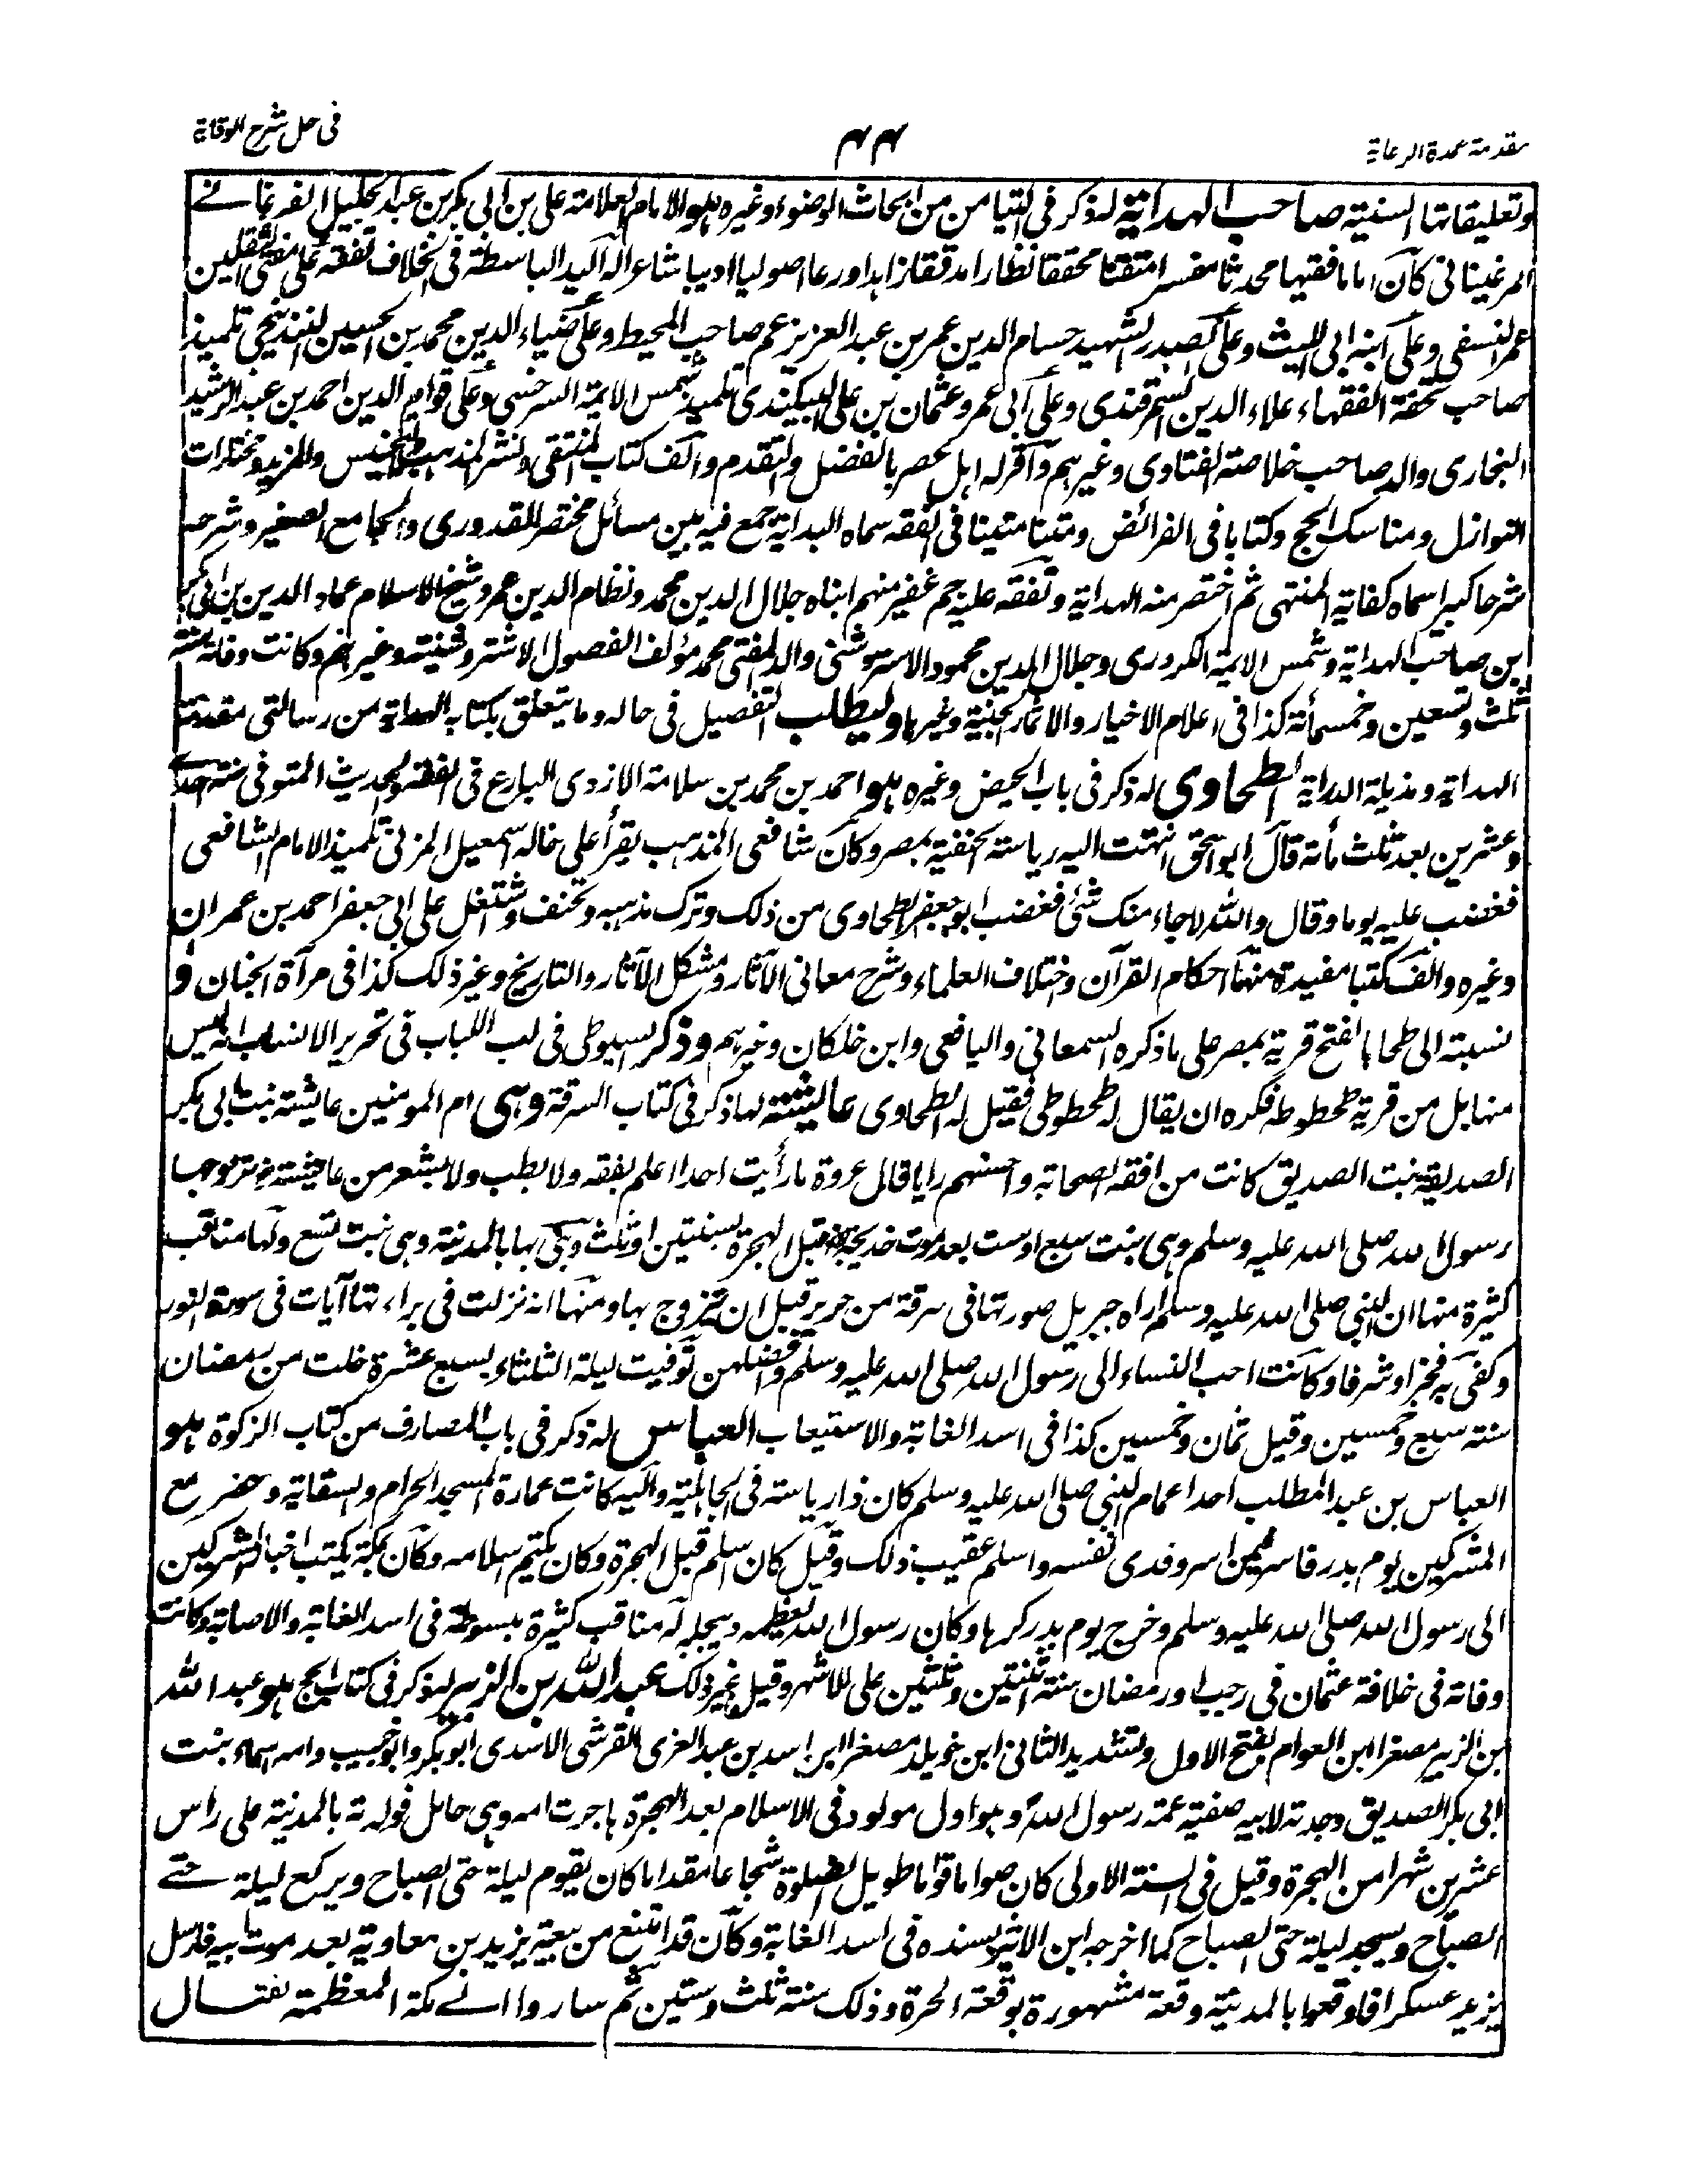 مقدمة عمدة الرعاية
۴۴
فى حل شرح الوقاية
وتعليقاتها السنية صاحب الهداية له ذكر فى التيامن من ابحاث الوضوء وغيره هو الامام العلامة على بن ابى بكر بن عبد الجليل الفرغانى
المرغينانى كان اماما فقيها محدثا مفسرا متقنا محققا نظارا مدققا زاهدا ورعا اصوليا اديبا شاعرا له اليد الباسطة فى الخلاف تفقه على مفتى الثقلين
عمر النسفى وعلى ابنه ابى الليث وعلى الصدر الشهيد حسام الدين عمر بن عبد العزيز عم صاحب المحيط وعلى ضياء الدين محمد بن الحسين البندنيجى تلميذ
صاحب تحفة الفقهاء علاء الدين السمرقندى وعلى ابى عمرو عثمان بن على البيكندى تلميذ شمس الائمة السرخسى وعلى قوام الدين احمد بن عبد الرشيد
البخارى والد صاحب خلاصة الفتاوى وغيرهم وأقر له اهل عصر بالفضل والتقدم وألف كتاب المنتقى ونشر المذهب والتجنيس والمزيد ومختارات
النوازل ومناسك الحج وكتابا فى الفرائض ومتنا متينا فى الفقه سماه البداية جمع فيه بين مسائل مختصر القدورى والجامع الصغير وشرحه
شرحا كبيرا سماه كفاية المنتهى ثم اختصر منه الهداية وتفقه عليه جم غفير منهم ابناه جلال الدين محمد ونظام الدين عمر وشيخ الاسلام عماد الدين بن ابى بكر
ابن صاحب الهداية وشمس الائمة الكردرى وجلال الدين محمود الاستروشنى والد المفتى محمد مؤلف الفصول الاشتروشنية وغيرهم وكانت وفاته سنة
ثلث وتسعين وخمسمأة كذا فى اعلام الاخيار والاثمار الجنية وغيرها وليطلب التفصيل فى حاله وما يتعلق بكتابه الهداية من رسالتى مقدمة
الهداية ومذيلة الدراية الطحاوى له ذكر فى باب الحيض وغيره هو احمد بن محمد بن سلامة الازدى البارع فى الفقه والحديث المتوفى سنة احدى
وعشرين بعد ثلث مأة قال ابو اسحق انتهت اليه رياسته الحنفية بمصر وكان شافعى المذهب يقرأ على خاله اسمعيل المزنى تلميذ الامام الشافعى
فغضب عليه يوما وقال والله لا جاء منك شئ فغضب ابو جعفر الطحاوى من ذلك وترك مذهبه وتحنف واشتغل على ابى جعفر احمد بن عمران
وغيره والف كتبا مفيدة منها احكام القرآن واختلاف العلماء وشرح معانى الآثار ومشكل الآثار والتاريخ وغير ذلك كذا فى مرآة الجنان و
نسبته الى طحا بالفتح قرية بمصر على ما ذكره السمعانى واليافعى وابن خلكان وغيرهم وذكر السيوطى فى لب اللباب فى تحرير الانساب انه ليس
منها بل من قرية طحطوطة فكره ان يقال له طحطوطى فقيل له الطحاوى عائشة لها ذكر فى كتاب السرقة وهى ام المومنين عايشة بنت ابى بكر
الصديقة بنت الصديق كانت من افقه الصحابة واحسنهم رايا قال عروة ما رأيت احدا اعلم بفقه ولا بطب ولا بشعر من عايشة تزوجها
رسول الله صلى الله عليه وسلم وهى بنت سبع او ست بعد موت خديجة قبل الهجرة بسنتين او ثلث وبنى بها بالمدينة وهى بنت تسع ولها مناقب
كثيرة منها ان النبى صلى الله عليه وسلم اراه جبريل صورتها فى سرقة من حرير قبل ان تزوج بها ومنها انه نزلت فى براءتها آيات فى سورة النور
وكفى به فخرا وشرفا وكانت احب النساء الى رسول الله صلى الله عليه وسلم وافضلهن توفيت ليلة الثلثاء لسبع عشرة خلت من رمضان
سنة سبع وخمسين وقيل ثمان وخمسين كذا فى اسد الغابة والاستيعاب العباس له ذكر فى باب المصارف من كتاب الزكوة هو
العباس بن عبد المطلب احد اعمام النبى صلى الله عليه وسلم كان ذا رياسته فى الجاهلية واليه كانت عمارة المسجد الحرام والسقاية وحضر مع
المشركين يوم بدر فاسر فيمن اسر وفدى نفسه واسلم عقيب ذلك وقيل كان اسلم قبل الهجرة وكان يكتم اسلامه وكان بمكة يكتب اخبار المشركين
الى رسول الله صلى الله عليه وسلم وخرج يوم بدر كرها وكان رسول الله يعظمه ويبجله له مناقب كثيرة مبسوطة فى اسد الغابة والاصابة وكانت
وفاته فى خلافة عثمان فى رجب او رمضان سنة اثنتين وثلثين على الاشهر وقيل غير ذلك عبد الله بن الزبير له ذكر فى كتاب الحج هو عبد الله
بن الزبير مصغرا ابن العوام بفتح الاول وتشديد الثانى ابن خويلد مصغرا ابن اسد بن عبد العزى القرشى الاسدى ابو بكر وابو خبيب وامه اسماء بنت
ابى بكر الصديق وجدته لابيه صفية عمة رسول الله وهو اول مولود فى الاسلام بعد الهجرة هاجرت امه وهى حامل فولدته بالمدينة على راس
عشرين شهرا من الهجرة وقيل فى السنة الاولى كان صواما قواما طويل الصلوة شجاعا مقداما كان يقوم ليلة حتى الصباح ويركع ليلة حتى
الصباح ويسجد ليلة حتى الصباح كما اخرجه ابن الاثير بسنده فى اسد الغابة وكان قد امتنع من بيعة يزيد بن معاوية بعد موت ابيه فارسل
يزيد عسكرا فاوقعوا بالمدينة وقعة مشهورة بوقعة الحرة وذلك سنة ثلث وستين ثم ساروا الى مكة المعظمة لقتال